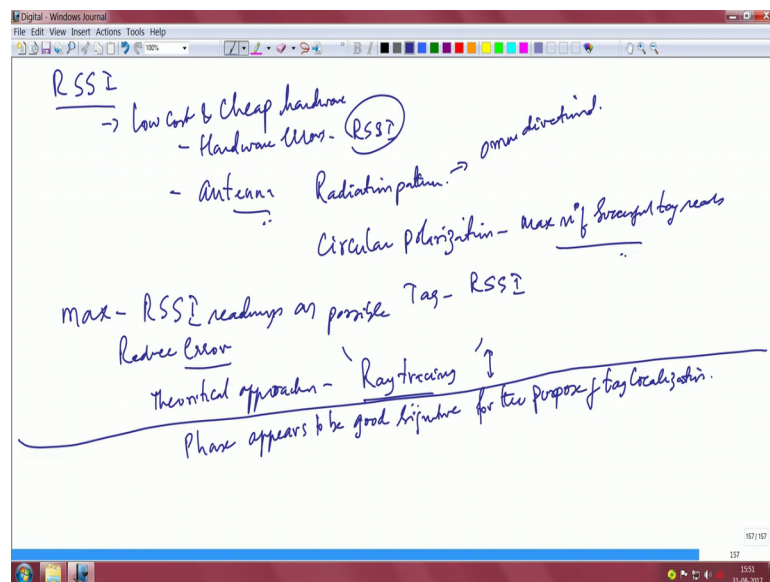 Digital - Windows Journal
File Edit View Insert Actions Tools Help
100%
RSSI
→ Low Cost & Cheap hardware
- Hardware errors - RSSI
- antenna Radiation pattern → omni directional.
Circular polarization - max nº of successful tag reads
max - RSSI readings as possible Tag - RSSI
Reduce Error
Theoritical approaches - Ray tracing
Phase appears to be good signature for the purpose of tag localization.
157/157
157
15:51
31-08-2017